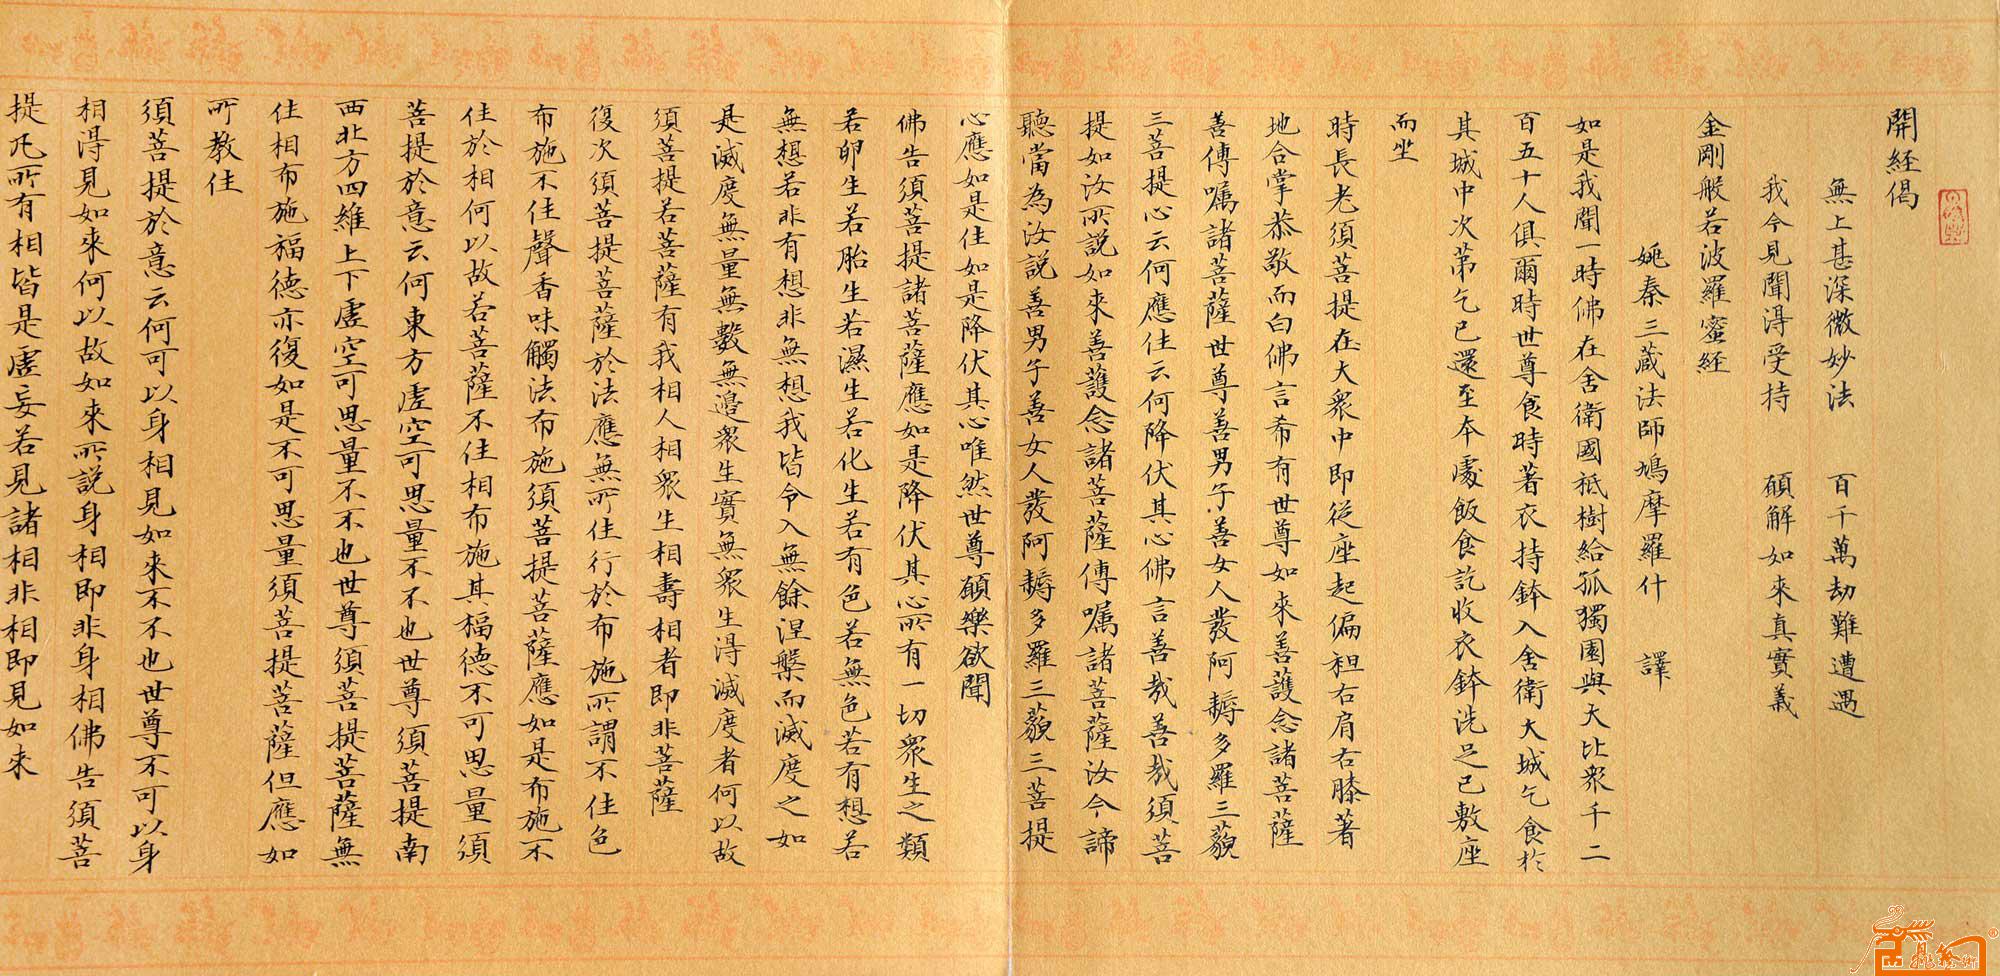 開經偈
無上甚深微妙法 百千萬劫難遭遇
我今見聞得受持 願解如來真實義
金剛般若波羅蜜經
姚秦三藏法師鳩摩羅什 譯
如是我聞一時佛在舍衛國祇樹給孤獨園與大比衆千二
百五十人俱爾時世尊食時著衣持鉢入舍衛大城乞食於
其城中次第乞已還至本處飯食訖收衣鉢洗足已敷座
而坐
時長老須菩提在大衆中即從座起偏袒右肩右膝著
地合掌恭敬而白佛言希有世尊如來善護念諸菩薩
善傅囑諸菩薩世尊善男子善女人發阿耨多羅三藐
三菩提心云何應住云何降伏其心佛言善哉善哉須菩
提如汝所說如來善護念諸菩薩傅囑諸菩薩汝今諦
聽當為汝説善男子善女人發阿耨多羅三藐三菩提
心應如是住如是降伏其心唯然世尊願樂欲聞
佛告須菩提諸菩薩應如是降伏其心所有一切衆生之類
若卵生若胎生若濕生若化生若有色若無色若有想若
無想若非有想非無想我皆令入無餘涅槃而滅度之如
是滅度無量無數無邊衆生實無衆生得滅度者何以故
須菩提若菩薩有我相人相衆生相壽相者即非菩薩
復次須菩提菩薩於法應無所住行於布施所謂不住色
布施不住聲香味觸法布施須菩提菩薩應如是布施不
住於相何以故若菩薩不住相布施其福德不可思量須
菩提於意云何東方虛空可思量不不也世尊須菩提南
西北方四維上下虛空可思量不不也世尊須菩提菩薩無
住相布施福德亦復如是不可思量須菩提菩薩但應如
所教住
須菩提於意云何可以身相見如來不不也世尊不可以身
相得見如來何以故如來所説身相即非身相佛告須菩
提凡所有相皆是虛妄若見諸相非相即見如來